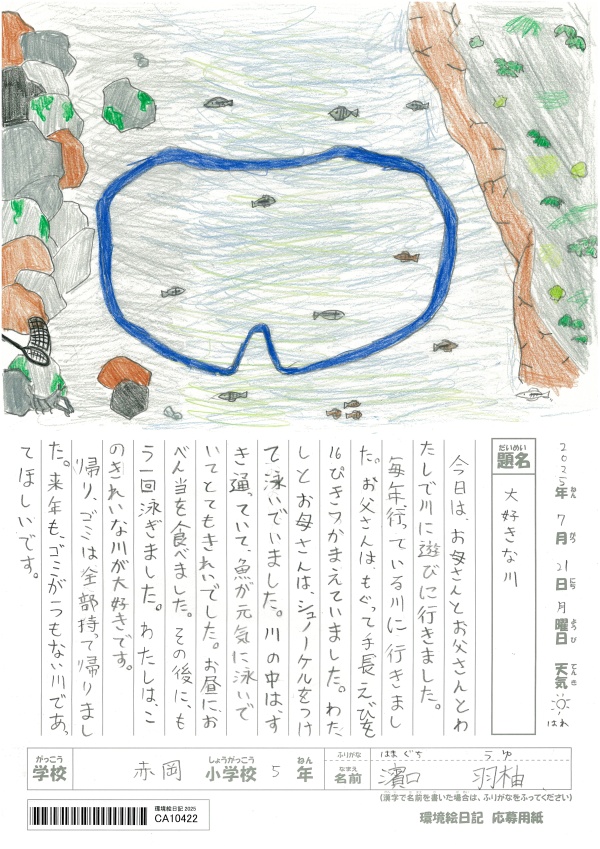 2025年ねん 7月がつ 21日にち 月曜日ようび 天気てんき はれ
題名だいめい 大好きな川
今日は、お母さんとお父さんとわ
たしで川に遊びに行きました。
毎年行っている川に行きまし
た。お父さんは、もぐって手長えびを
16ぴきつかまえていました。わた
しとお母さんは、シュノーケルをつけ
て泳いでいました。川の中は、す
き通っていて、魚が元気に泳いで
いてとてもきれいでした。お昼に、お
べん当を食べました。その後に、も
う一回泳ぎました。わたしは、こ
のきれいな川が大好きです。
帰り、ゴミは全部持って帰りまし
た。来年も、ゴミが一つもない川であっ
てほしいです。
がっこう 学校 赤岡 しょうがっこう 小学校 5 ねん 年
ふりがな はまぐち うゆ
なまえ 名前 濱口 羽柚
(漢字で名前を書いた場合は、ふりがなをふってください)
環境絵日記 2025
CA10422
環境絵日記 応募用紙